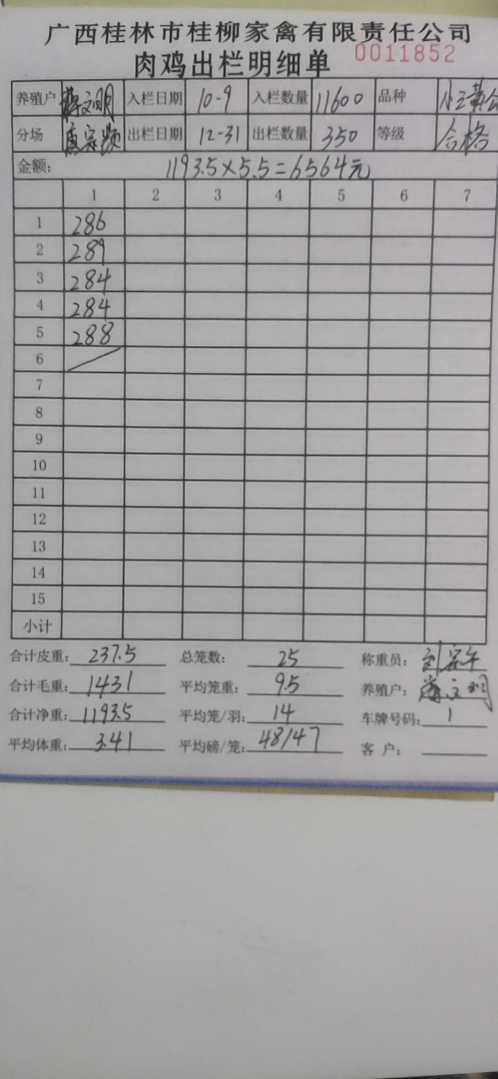 广西桂林市桂柳家禽有限责任公司
肉鸡出栏明细单 0011852
养殖户 文明 入栏日期 10-9 入栏数量 11600 品种
分场 出栏日期 12-31 出栏数量 350 等级 合格
金额: 1193.5×5.5=6564元
1 2 3 4 5 6 7
1 286
2 289
3 284
4 284
5 288
6
7
8
9
10
11
12
13
14
15
小计
合计皮重: 237.5 总笼数: 25 称重员:
合计毛重: 1431 平均笼重: 9.5 养殖户: 文明
合计净重: 1193.5 平均笼/羽: 14 车牌号码: 1
平均体重: 3.41 平均磅/笼: 48/47 客 户: